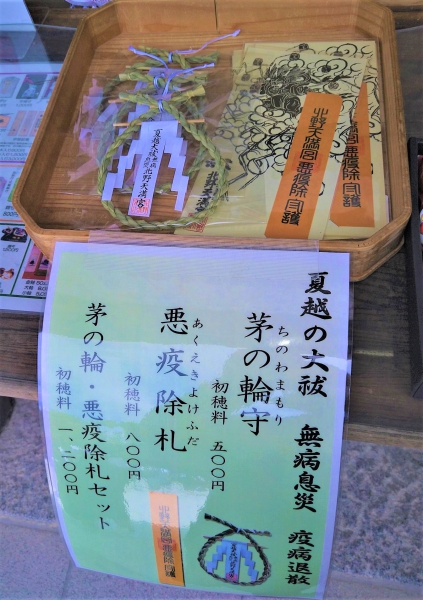 夏越の大祓 無病息災
北野天満宮
北野天満宮 悪疫除 守護
悪疫除 守護
夏越の大祓 無病息災 疫病退散
ちのわまもり
茅の輪守
初穂料 五〇〇円
あくえきよけふだ
悪疫除札
初穂料 八〇〇円
茅の輪・悪疫除札セット
初穂料 一、二〇〇円